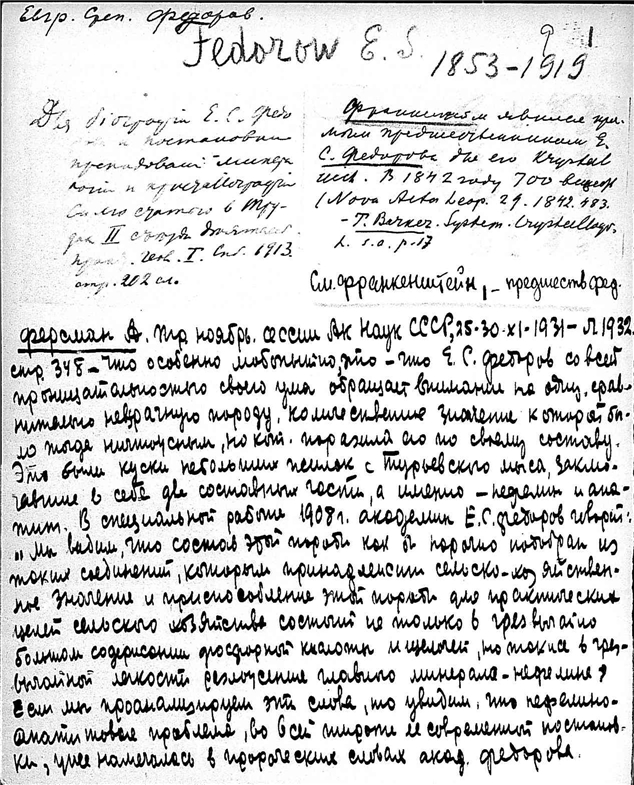 Евгр. Степ. Федоров.
Fedorow E. S. 1853-1919
Для біографіи Е. С. Федо
и постановки
преподованія минера
логіи и кристаллографіи
въ Тру-
дах II съезда
геол. I. Спб. 1913.
стр. 202 сл.
Франкенгейм явился пря-
мым предшественником Е.
С. Федорова для его Krystal
. В 1842 году 700 веществ
(Nova Acta Leop. 29. 1842. 483.
- T. Barker. System. Crystallogr.
L. s.a. p. 17
См. Франкенштейн, - предшеств. Фед.
Ферсман А. Тр. ноябрь. сессии Ак Наук СССР, 25-30-XI-1931 - Л 1932.
стр. 348 - Что особенно любопытно, это - что Е. С. Федоров со всей
проницательностью своего ума обращает внимание на одну, срав-
нительно невзрачную породу, количественное значение которой бы-
ло тогда ничтожным, но кот. поразила его по своему составу.
Это были куски небольших жилок с Турьевского мыса, заклю-
чавшие в себе две составных части, а именно - нефелин и апа-
тит. В специальной работе 1908 г. академик Е. С. Федоров говорит:
„Мы видим, что состав этой породы как бы нарочно подобран из
таких соединений, которым принадлежит сельско-хозяйствен-
ное значение и приспособление этой породы для практических
целей сельского хозяйства состоит не только в чрезвычайно
большом содержании фосфорной кислоты и щелочей, но также в чрез-
вычайной легкости разложения главного минерала - нефелина"
Если мы проанализируем эти слова, то увидим, что нефелино-
апатитовая проблема, во всей широте ее современной постанов-
ки, уже намечалась в пророческих словах акад. Федорова.